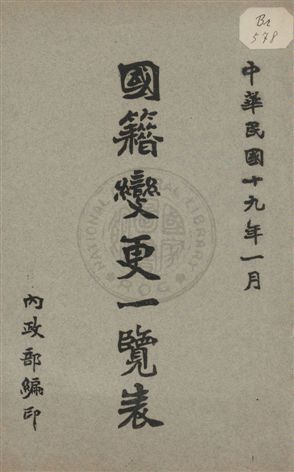 Br
578
中華民國十九年一月
國籍變更一覽表
內政部編印
NATIONAL CENTRAL LIBRARY
R.O.C.